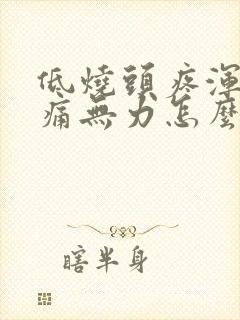 低燒頭疼渾
痛無力怎麼
瞎半身